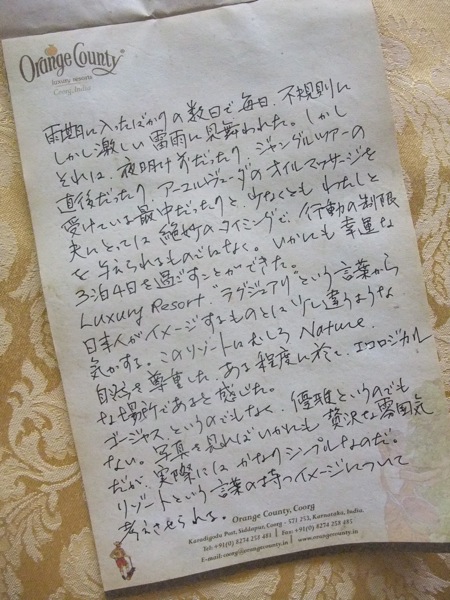 Orange County®
luxury resorts
Coorg, India
雨期に入ったばかりの数日で、毎日、不規則に
しかし激しい雷雨に見舞われた。しかし
それは、夜明け前だったり、ジャングルツアーの
直後だったり、アーユルヴェーダのオイルマッサージを
受けている最中だったりと、少なくとも わたしと
夫にとっては 絶妙のタイミングで、行動の制限
を与えられるものではなく。いかにも 幸運な
3泊4日を過ごすことができた。
Luxury Resort. "ラグジュアリ" という言葉から
日本人がイメージするものとは 少し違うような
気がする。このリゾートは むしろ Nature.
自然を尊重した、ある程度に於て、エコロジカル
な場所であると感じた。
ゴージャス、というのでもなく、優雅というのでも
ない。写真を見ればいかにも 贅沢な雰囲気
だが、実際には かなりシンプルなのだ。
リゾートという言葉の持つイメージについて
考えさせられる。
Orange County, Coorg
Karadigodu Post, Siddapur, Coorg - 571 253, Karnataka, India.
Tel: +91(0) 8274 258 481 | Fax: +91(0) 8274 258 485
E-mail: coorg@orangecounty.in | www.orangecounty.in